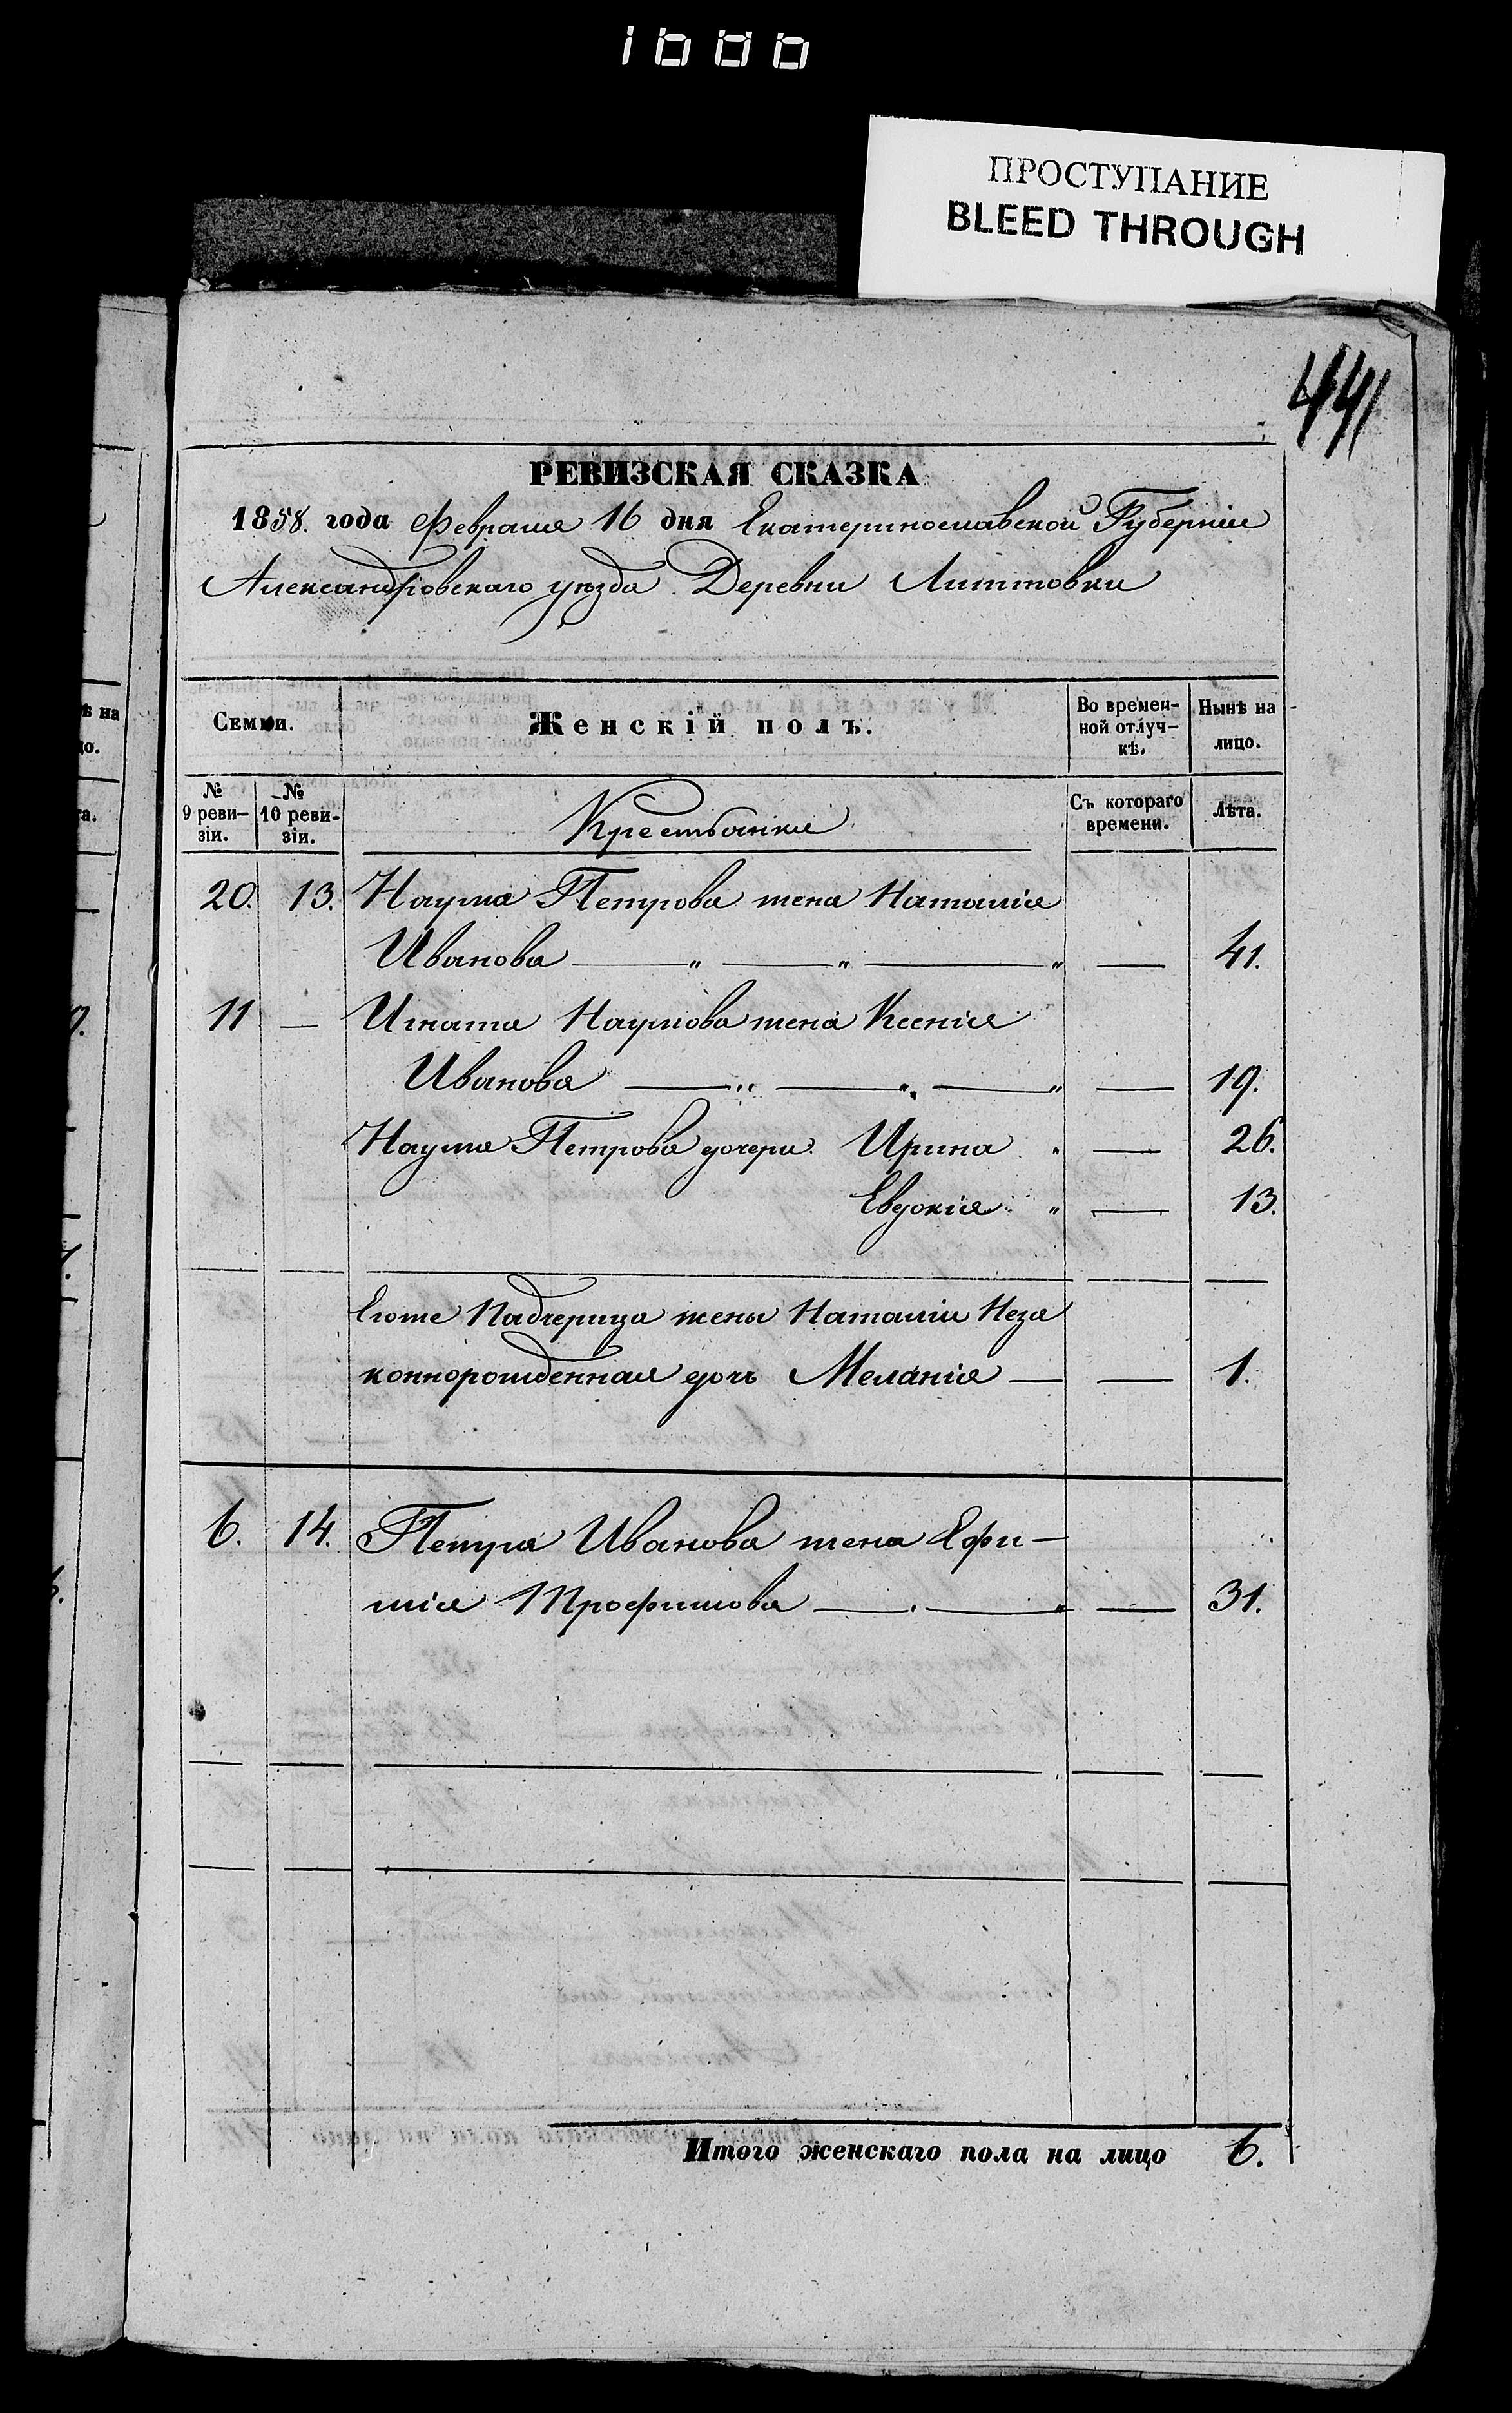 1000
ПРОСТУПАНИЕ
BLEED THROUGH
441
РЕВИЗСКАЯ СКАЗКА
1858. года Февраля 16 дня Екатеринославской Губерніи
Александровскаго уѣзда Деревни Литтовки
Семьи.
Женскій полъ.
Во времен-
ной отлуч-
кѣ.
Нынѣ на
лицо.
№
9 реви-
зіи.
№
10 реви-
зіи.
Крестьянки
Съ котораго
времени.
Лѣта.
20. 13. Наума Петрова жена Наталія
Иванова — „ — „ — „ — 41.
11 — Игната Наумова жена Ксенія
Иванова — „ — „ — „ — 19.
Наума Петрова дочери Ирина „ — 26.
Евдокія „ — 13.
Егоже Падчерица жены Наталіи Неза
коннорожденная дочь Меланія — — 1.
6. 14. Петра Иванова жена Ефи-
мія Трофимова — „ — „ — 31.
Итого женскаго пола на лицо 6.